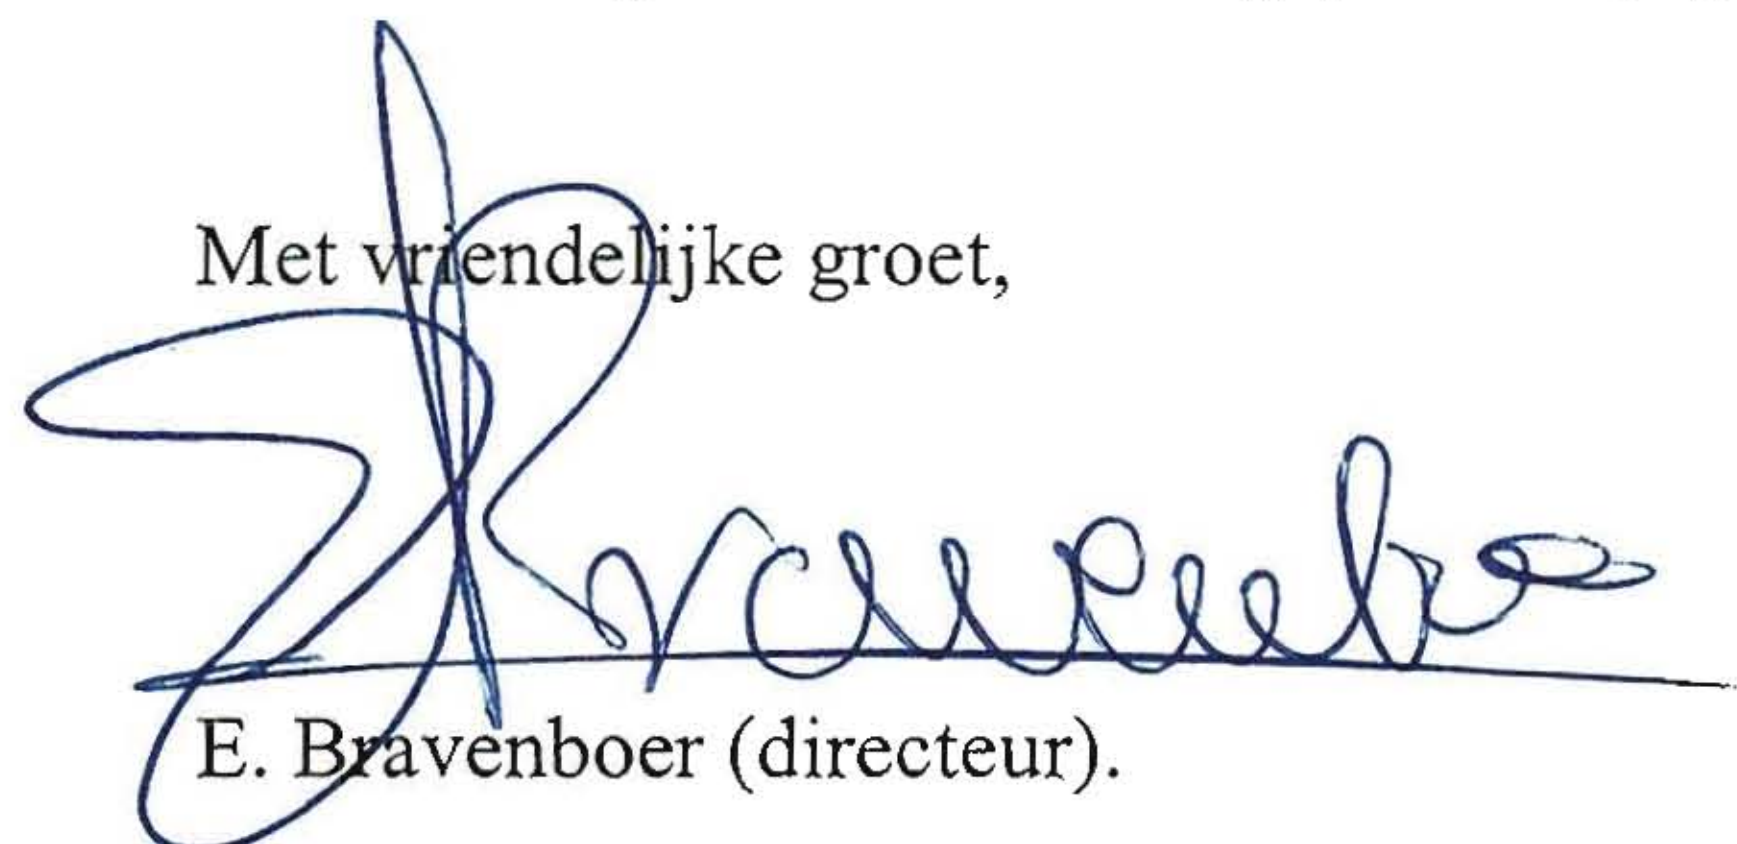 Met vriendelijke groet,
E. Bravenboer (directeur).